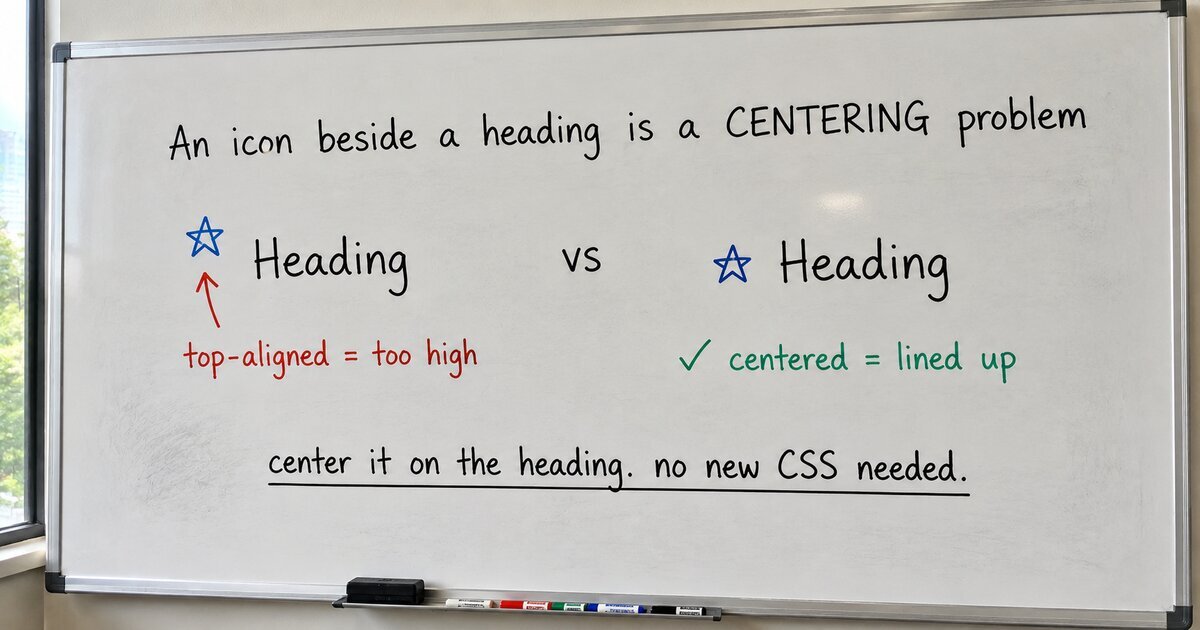 An icon beside a heading is a CENTERING problem
Heading vs Heading
top-aligned = too high ✓ centered = lined up
center it on the heading. no new CSS needed.